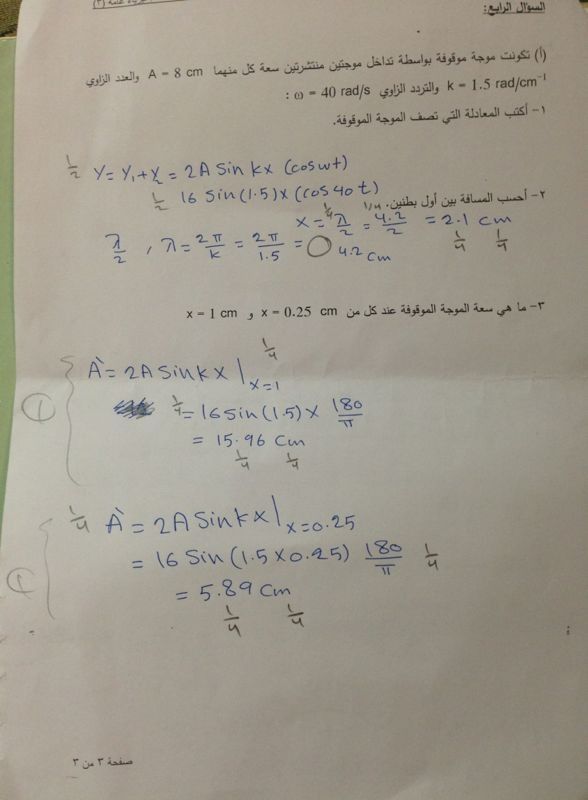 عامة (٣)
السؤال الرابع:
(أ) تكونت موجة موقوفة بواسطة تداخل موجتين منتشرتين سعة كل منهما A = 8 cm والعدد الزاوي
k = 1.5 rad/cm⁻¹ والتردد الزاوي ω = 40 rad/s :
١- أكتب المعادلة التي تصف الموجة الموقوفة.
1/2 Y = Y₁ + Y₂ = 2A Sin kx (cos ωt)
1/2 16 Sin (1.5) x (cos 40 t)
٢- أحسب المسافة بين أول بطنين.
1/4 1/4
x = λ/2 = 4.2/2 = 2.1 cm
λ/2 , λ = 2π/k = 2π/1.5 = 4.2 cm
1/4 1/4
٣- ما هي سعة الموجة الموقوفة عند كل من x = 0.25 cm و x = 1 cm
1/4
À = 2A Sin k x | x=1
1
1/4 = 16 sin (1.5) x 180/π
= 15.96 Cm
1/4 1/4
1/4 À = 2A Sin k x | x=0.25
= 16 Sin (1.5 x 0.25) 180/π 1/4
1
= 5.89 Cm
1/4 1/4
صفحة ٣ من ٣